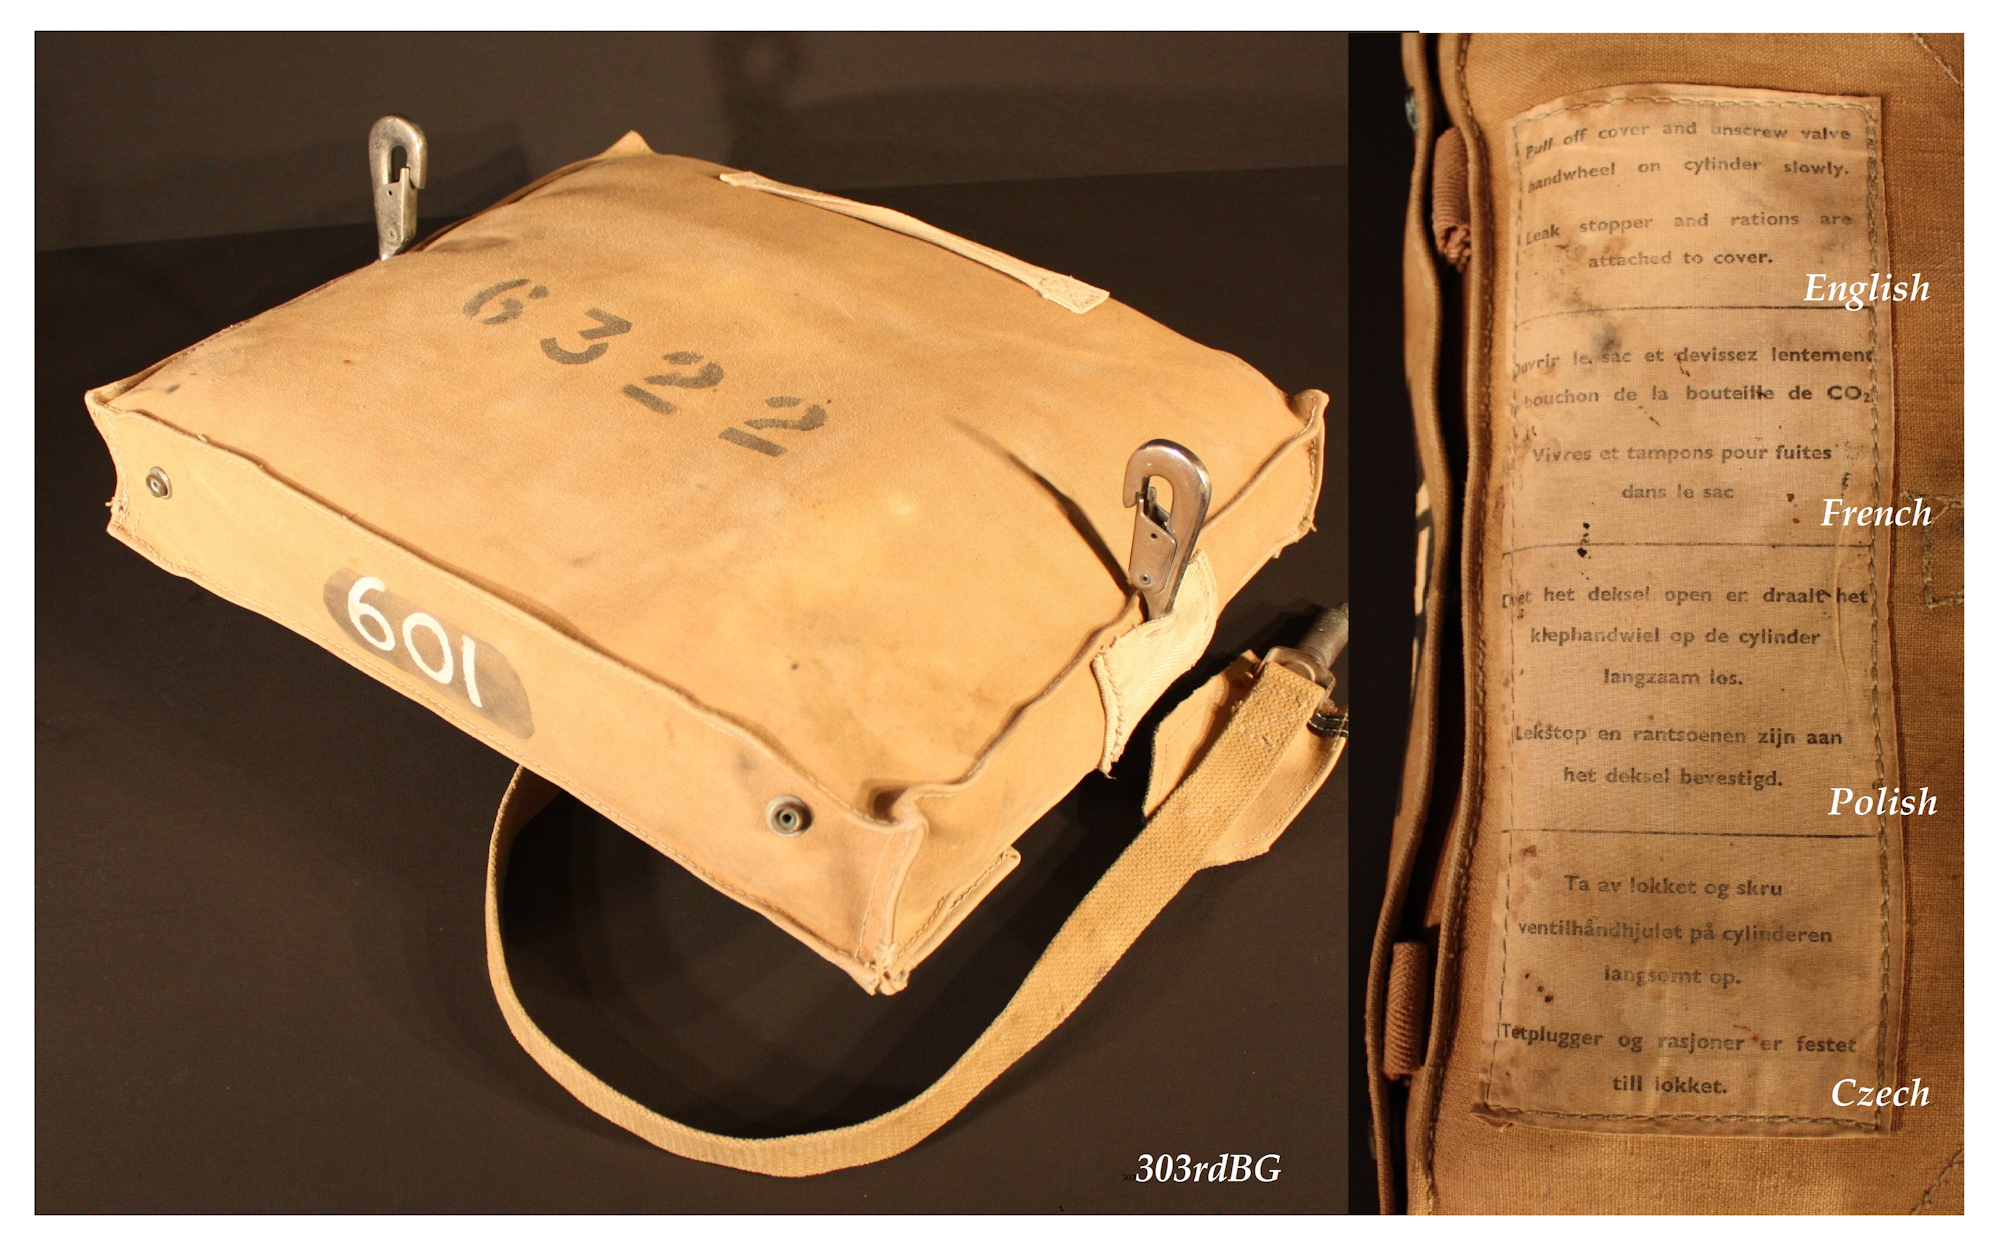 6322
601
303rdBG
Pull off cover and unscrew valve
handwheel on cylinder slowly.
Leak stopper and rations are
attached to cover.
English
Ouvrir le sac et devissez lentement
bouchon de la bouteille de CO₂
Vivres et tampons pour fuites
dans le sac
French
het deksel open en draalt het
klephandwiel op de cylinder
langzaam los.
Lekstop en rantsoenen zijn aan
het deksel bevestigd.
Polish
Ta av lokket og skru
ventilhåndhjulet på cylinderen
langsomt op.
Tetplugger og rasjoner er festet
till lokket.
Czech